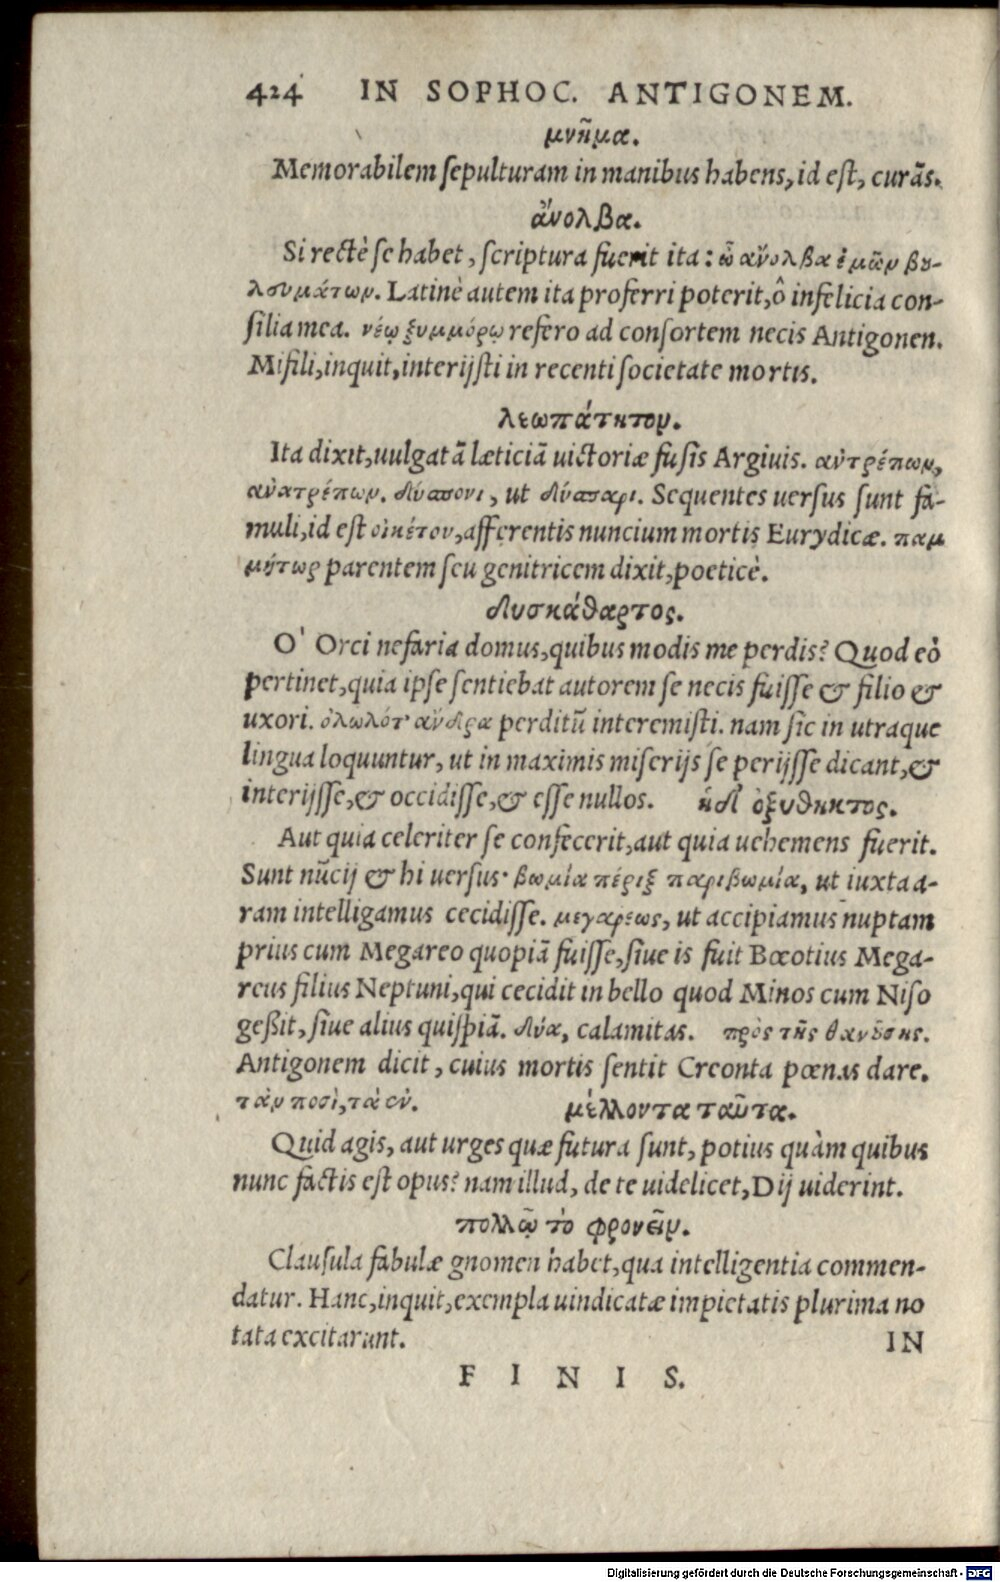 424 IN SOPHOC. ANTIGONEM.
μνῆμα.
Memorabilem sepulturam in manibus habens, id est, curãs.
ἄνολβα.
Si rectè se habet, scriptura fuerit ita: ὦ ἄνολβα ἐμῶν βου-
λευμάτων. Latinè autem ita proferri poterit, ô infelicia con-
silia mea. νέῳ ξυμμόρῳ refero ad consortem necis Antigonen.
Mi fili, inquit, interijsti in recenti societate mortis.
λεωπάτητον.
Ita dixit, uulgatã læticiã uictoriæ fusis Argiuis. ἀντρέπων,
ἀνατρέπων. δύσπονι, ut δύσπαρι. Sequentes uersus sunt fa-
muli, id est οἰκέτου, afferentis nuncium mortis Eurydicæ. παμ
μήτωρ parentem seu genitricem dixit, poeticè.
δυσκάθαρτος.
O' Orci nefaria domus, quibus modis me perdis? Quod eò
pertinet, quia ipse sentiebat autorem se necis fuisse & filio &
uxori. ὀλωλότ' ἄνδρα perditũ interemisti. nam sic in utraque
lingua loquuntur, ut in maximis miserijs se perijsse dicant, &
interijsse, & occidisse, & esse nullos. ἡ δ' ὀξύθηκτος.
Aut quia celeriter se confecerit, aut quia uehemens fuerit.
Sunt nũcij & hi uersus· βωμία πέριξ παριβωμία, ut iuxta a-
ram intelligamus cecidisse. μεγαρέως, ut accipiamus nuptam
prius cum Megareo quopiã fuisse, siue is fuit Bœotius Mega-
reus filius Neptuni, qui cecidit in bello quod Minos cum Niso
geßit, siue alius quispiã. δύα, calamitas. πρὸς τῆς θανούσης.
Antigonem dicit, cuius mortis sentit Creonta pœnas dare.
τἀν ποσὶ, τὰ ἐν. μέλλοντα ταῦτα.
Quid agis, aut urges quæ futura sunt, potius quàm quibus
nunc factis est opus? nam illud, de te uidelicet, Dij uiderint.
πολλῷ τὸ φρονεῖν.
Clausula fabulæ gnomen habet, qua intelligentia commen-
datur. Hanc, inquit, exempla uindicatæ impietatis plurima no
tata excitarunt. IN
FINIS.
Digitalisierung gefördert durch die Deutsche Forschungsgemeinschaft - DFG